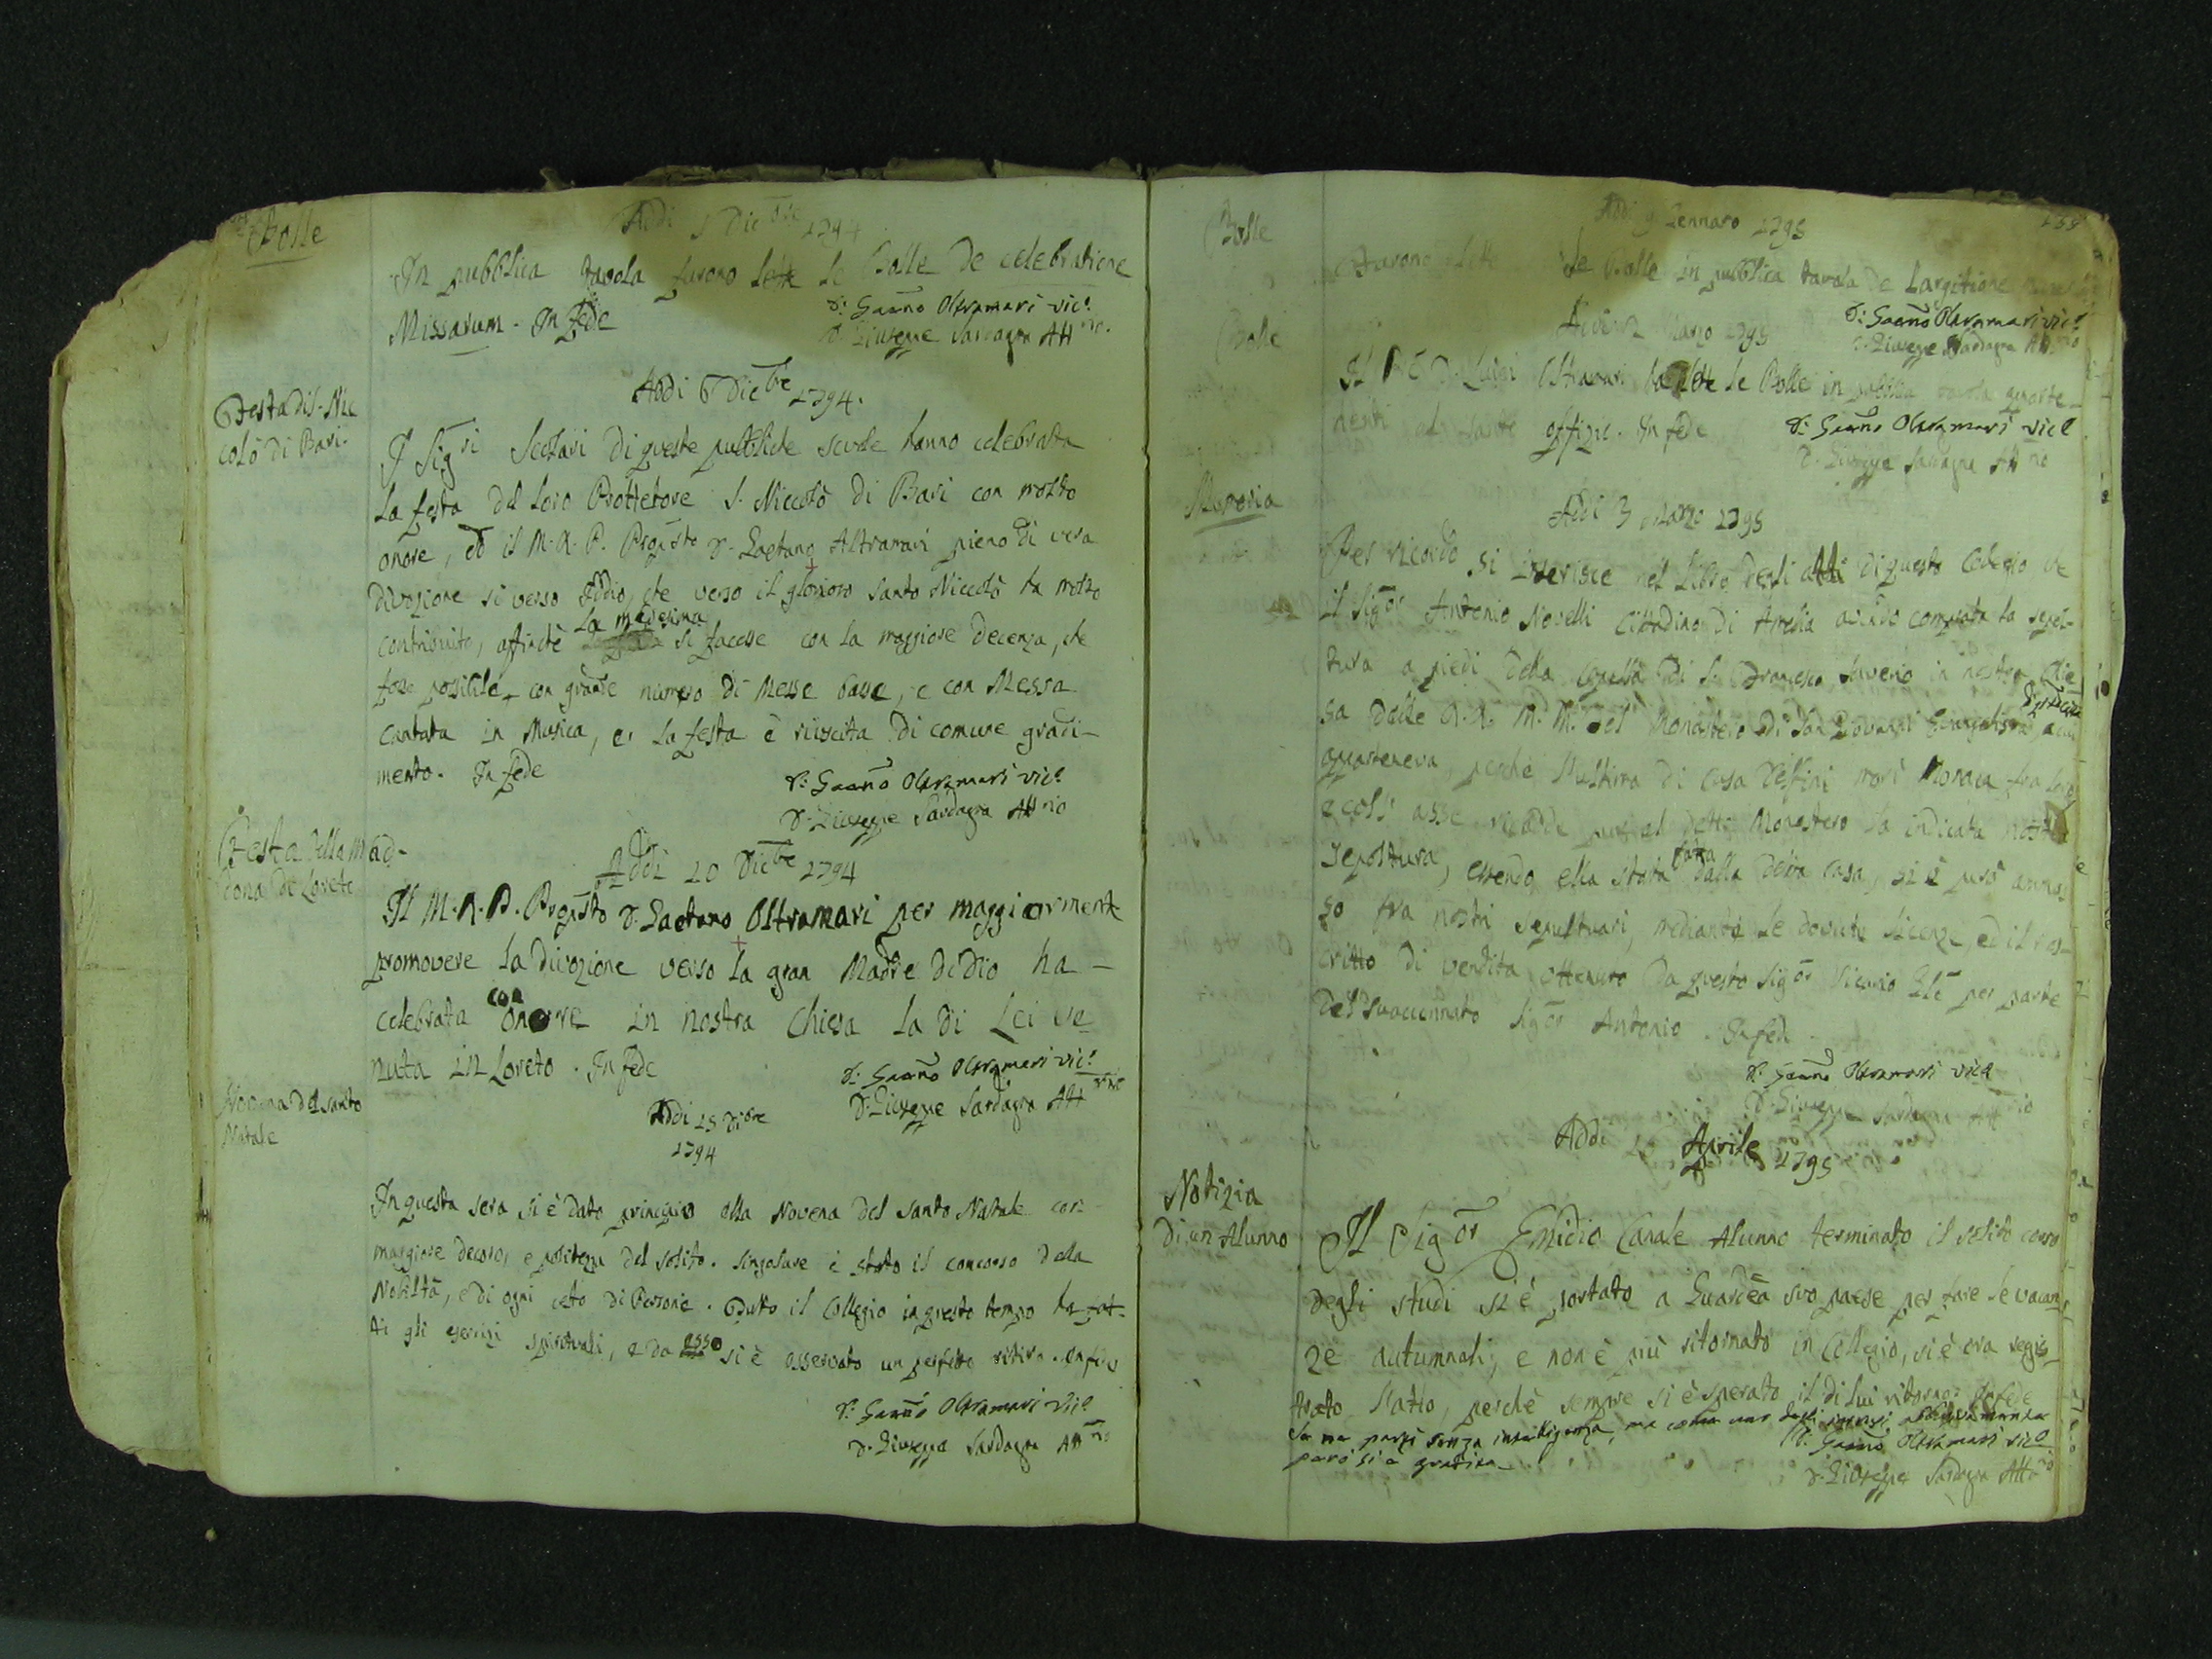 Bolle
Addi 5 Dicbre 1794
In pubblica tavola furono lette le Bolle de celebratione
Missarum. In fede
D. Gaēno Oltramari vic.
D. Giuseppe Sardagna Attrio.
Festa di S. Nic
colò di Bari.
Addi 6 Dicbre 1794.
I Sigri Scolari di queste pubbliche scuole hanno celebrata
la festa del loro Prottetore S. Niccolò di Bari con molto
onore, ed il M. R. P. Proposto D. Gaetano Altramari pieno di vera
divozione si verso Iddio, che verso il glorioso Santo Niccolò ha molto
contribuito, affinchè la medesima si facesse con la maggiore decenza, che
fosse possibile, con grande numero di Messe basse, e con Messa
cantata in Musica, e la festa è riuscita di comune gradi-
mento. In fede
D. Gaēno Oltramari vic.
D. Giuseppe Sardagna Attrio
Festa della Mad-
dona di Loreto
Addi 10 Dicbre 1794
Il M. R. P. Proposto D. Gaetano Oltramari per maggiormente
promovere la divozione verso la gran Madre di Dio ha
celebrata con onore in nostra Chiesa la di Lei ve
nuta in Loreto. In fede
D. Gaēno Oltramari vic.
D. Giuseppe Sardagna Attrio
Novena del Santo
Natale
Addi 15 Dibre
1794
In questa sera si è dato principio alla Novena del Santo Natale con
maggiore decoro, e politezza del solito. Singolare è stato il concorso della
Nobiltà, e di ogni ceto di Persone. Tutto il Collegio in questo tempo ha fat-
ti gli esercizi spirituali, e da esso si è osservato un perfetto ritiro. In fede
D. Gaēno Oltramari vic.
D. Giuseppe Sardagna Attrio
Bolle
Addi 9 Gennaro 1795
Furono lette le Bolle in pubblica tavola de Largitione
D. Gaēno Oltramari vic.
D. Giuseppe Sardagna Attrio
Bolle
Addi Marzo 1795
Il D. Luigi Oltramari ha lette le Bolle in pubblica tavola apparte-
nenti al Santo Offizio. In fede
D. Gaēno Oltramari vic.
D. Giuseppe Sardagna Attrio
Memoria
Addi 3 Marzo 1795
Per ricordo si inserisce nel Libro degli atti di questo Collegio che
il Sigor Antonio Novelli Cittadino di Amelia avendo comprata la sepol-
tura a piedi della Cappella di S. Francesco Saverio in nostra Chie
sa dalle R. R. M. M. del Monastero di San Giovanni Evangelista a cui
apparteneva, perchè l'ultima di casa morì Monaca fra loro
e così esse ricadde pur al detto Monastero la indicata nostra
sepoltura, essendo ella stata fatta dalla detta casa, si è però
so fra nostri sepultuari, mediante le dovute licenze, ed il res-
critto di vendita ottenuto da questo Sigor Vicario Gle per parte
del suaccennato Sigor Antonio. In fede.
D. Gaēno Oltramari vic.
D. Giuseppe Sardagna Attrio
Notizia
di un Alunno
Addi Aprile 1795
Il Sigor Emidio Canale Alunno terminato il solito corso
degli studi si è portato a Guardea suo paese per fare le vacan
ze autumnali, e non è più ritornato in Collegio, si è ora regis-
trato l'atto, perchè sempre si è sperato il di lui ritorno. In fede
se ne partì senza intelligenza, ma come uno degli
però si è
D. Gaēno Oltramari vic.
D. Giuseppe Sardagna Attrio